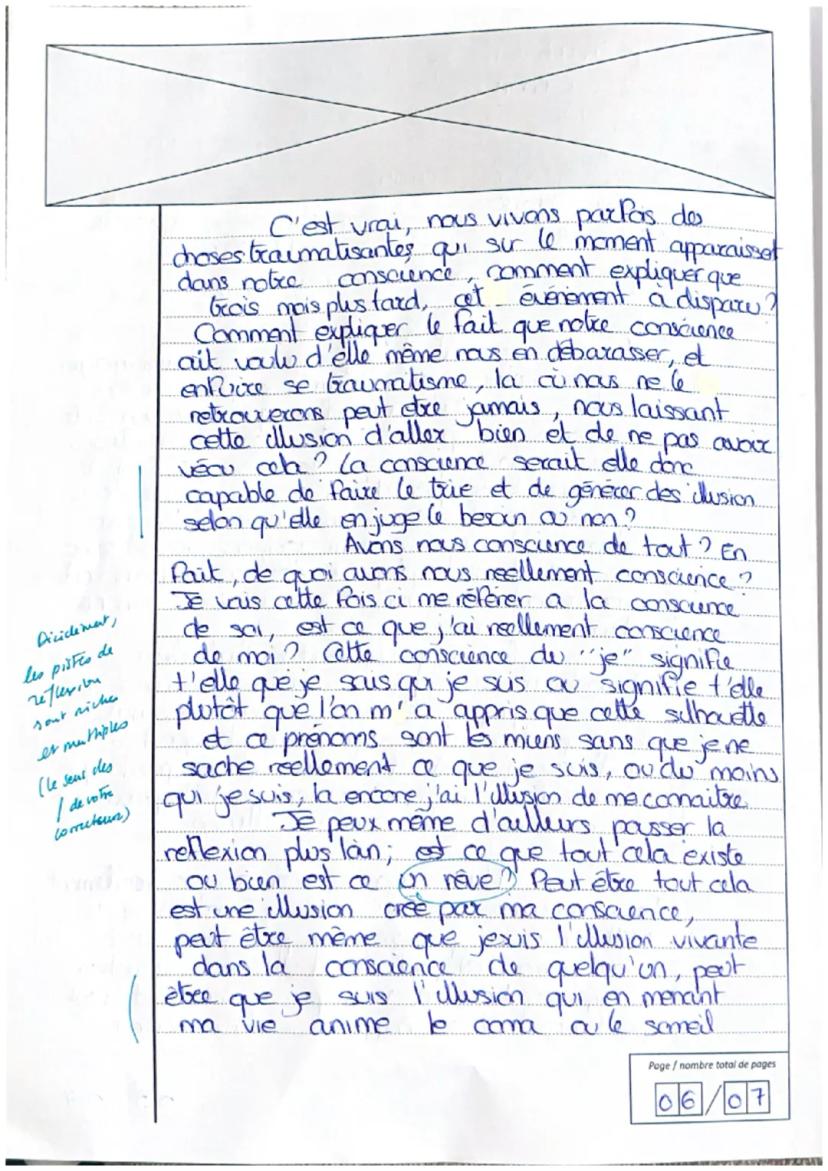 C'est vrai, nous vivons parfois des
choses traumatisantes qui sur le moment apparaisset
dans notre conscience, comment expliquer que
trois mois plus tard, cet événement a disparu ?
Comment expliquer le fait que notre conscience
ait voulu d'elle même nous en débarasser, et
enfuire se traumatisme, la où nous ne le
retrouverons peut etre jamais, nous laissant
cette illusion d'aller bien et de ne pas avoir
vécu cela ? La conscience serait elle donc
capable de faire le trie et de générer des illusion
selon qu'elle en juge le besoin ou non ?
Avons nous conscience de tout ? En
fait, de quoi avons nous reellement conscience ?
Je vais cette fois ci me référer a la conscience
de soi, est ce que j'ai reellement conscience
de moi ? Cette conscience du "je" signifie
t'elle que je sais qui je suis ou signifie t'elle
plutôt que l'on m'a appris que cette silhouette
et ce prénoms sont les miens sans que je ne
sache réellement ce que je suis, ou du moins
qui je suis, la encore j'ai l'illusion de me connaitre.
Je peux même d'ailleurs pousser la
reflexion plus loin ; est ce que tout cela existe
ou bien est ce un rêve ? Peut être tout cela
est une illusion crée par ma conscience,
peut être même que je suis l'illusion vivante
dans la conscience de quelqu'un, peut
être que je suis l'illusion qui en menant
ma vie anime le coma ou le someil
Décidément,
les pistes de
réflexion
sont riches
et multiples
(le seul des
/ de votre
correcteur)
Page / nombre total de pages
06/07